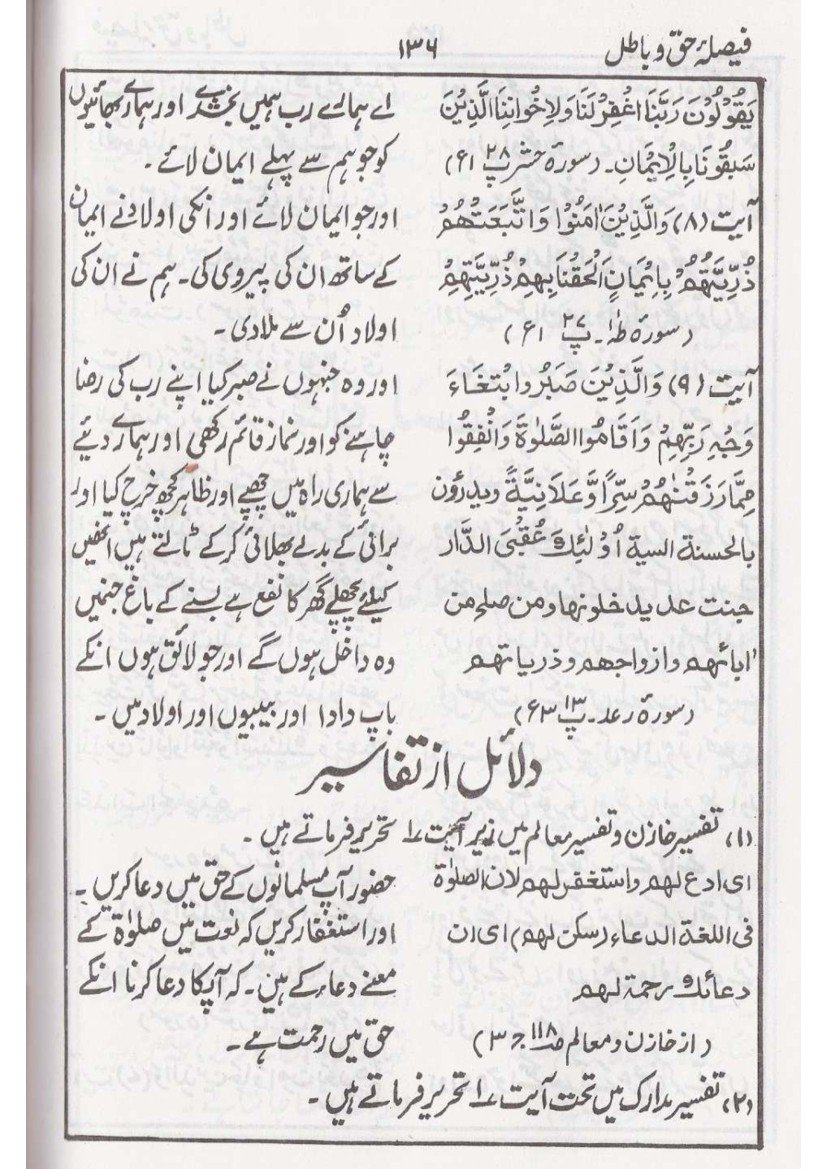 فیصلۂ حق و باطل
۱۳۶
يَقُوْلُوْنَ رَبَّنَا اغْفِرْ لَنَا وَلِاِخْوَانِنَا الَّذِيْنَ
سَبَقُوْنَا بِالْاِيْمَانِ۔ (سورہ حشر پ ۲۸ ع۱)
آیت (۸) وَالَّذِيْنَ اٰمَنُوْا وَاتَّبَعَتْهُمْ
ذُرِّيَّتُهُمْ بِاِيْمَانٍ اَلْحَقْنَا بِهِمْ ذُرِّيَّتِهِمْ
(سورۃ طہٰ۔ پ ۲۷ ع۱)
آیت (۹) وَالَّذِيْنَ صَبَرُوا ابْتِغَاءَ
وَجْهِ رَبِّهِمْ وَاَقَامُوا الصَّلٰوةَ وَانْفِقُوْا
مِمَّا رَزَقْنٰهُمْ سِرًّا وَّعَلَانِيَّةً ويدرؤن
بالحسنة السية أُوْلٰئِكَ عُقْبَى الدَّار
جنت عدن يدخلونها ومن صلح من
اٰبائهم وازواجهم وذرياتهم
(سورۂ رعد۔ پ ۱۳ ع۳)
اے ہمارے رب ہمیں بخشدے اور ہمارے بھائیوں
کو جو ہم سے پہلے ایمان لائے۔
اور جو ایمان لائے اور انکی اولاد نے ایمان
کے ساتھ ان کی پیروی کی۔ ہم نے ان کی
اولاد اُن سے ملادی۔
اور وہ جنہوں نے صبر کیا اپنے رب کی رضا
چاہنے کو اور نماز قائم رکھی اور ہمارے دئیے
سے ہماری راہ میں چھپے اور ظاہر کچھ خرچ کیا اور
برائی کے بدلے بھلائی کرکے ٹالتے ہیں انھیں
کیلئے پچھلے گھر کا نفع ہے بسنے کے باغ جنمیں
وہ داخل ہوں گے اور جو لائق ہوں انکے
باپ دادا اور بیبیوں اور اولاد میں۔
دلائل از تفاسیر
(۱) تفسیر خازن و تفسیر معالم میں زیر آیت ۱ تحریر فرماتے ہیں۔
ای ادع لهم واستغفر لهم لان الصلوٰة
فی اللغة الدعاء (سكن لهم) ای ان
دعائك رحمة لهم
(از خازن و معالم صـ۱۱۸ ج ۳)
حضور آپ مسلمانوں کے حق میں دعا کریں۔
اور استغفار کریں کہ نعت میں صلوٰۃ کے
معنے دعاء کے ہیں۔ کہ آپکا دعا کرنا انکے
حق میں رحمت ہے۔
(۲) تفسیر مدارک میں تحت آیت ۱ تحریر فرماتے ہیں۔